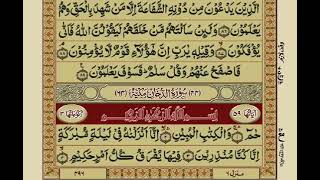 الَّذِيْنَ يَدْعُوْنَ مِنْ دُوْنِهِ الشَّفَاعَةَ اِلَّا مَنْ شَهِدَ بِالْحَقِّ وَهُمْ
يَعْلَمُوْنَ وَلَئِنْ سَاَلْتَهُمْ مَّنْ خَلَقَهُمْ لَيَقُوْلُنَّ اللّٰهُ فَاَنّٰى
يُؤْفَكُوْنَ وَقِيْلِهٖ يٰرَبِّ اِنَّ هٰٓؤُلَآءِ قَوْمٌ لَّا يُؤْمِنُوْنَ
فَاصْفَحْ عَنْهُمْ وَقُلْ سَلٰمٌ فَسَوْفَ يَعْلَمُوْنَ
اٰيَاتُهَا ۵۹ سُوْرَةُ الدُّخَانِ مَكِّيَّةٌ رُكُوْعَاتُهَا ۳
بِسْمِ اللّٰهِ الرَّحْمٰنِ الرَّحِيْمِ
حٰمٓ وَالْكِتٰبِ الْمُبِيْنِ اِنَّآ اَنْزَلْنٰهُ فِيْ لَيْلَةٍ مُّبٰرَكَةٍ
اِنَّا كُنَّا مُنْذِرِيْنَ فِيْهَا يُفْرَقُ كُلُّ اَمْرٍ حَكِيْمٍ
منزل ۶ ۴۹۶